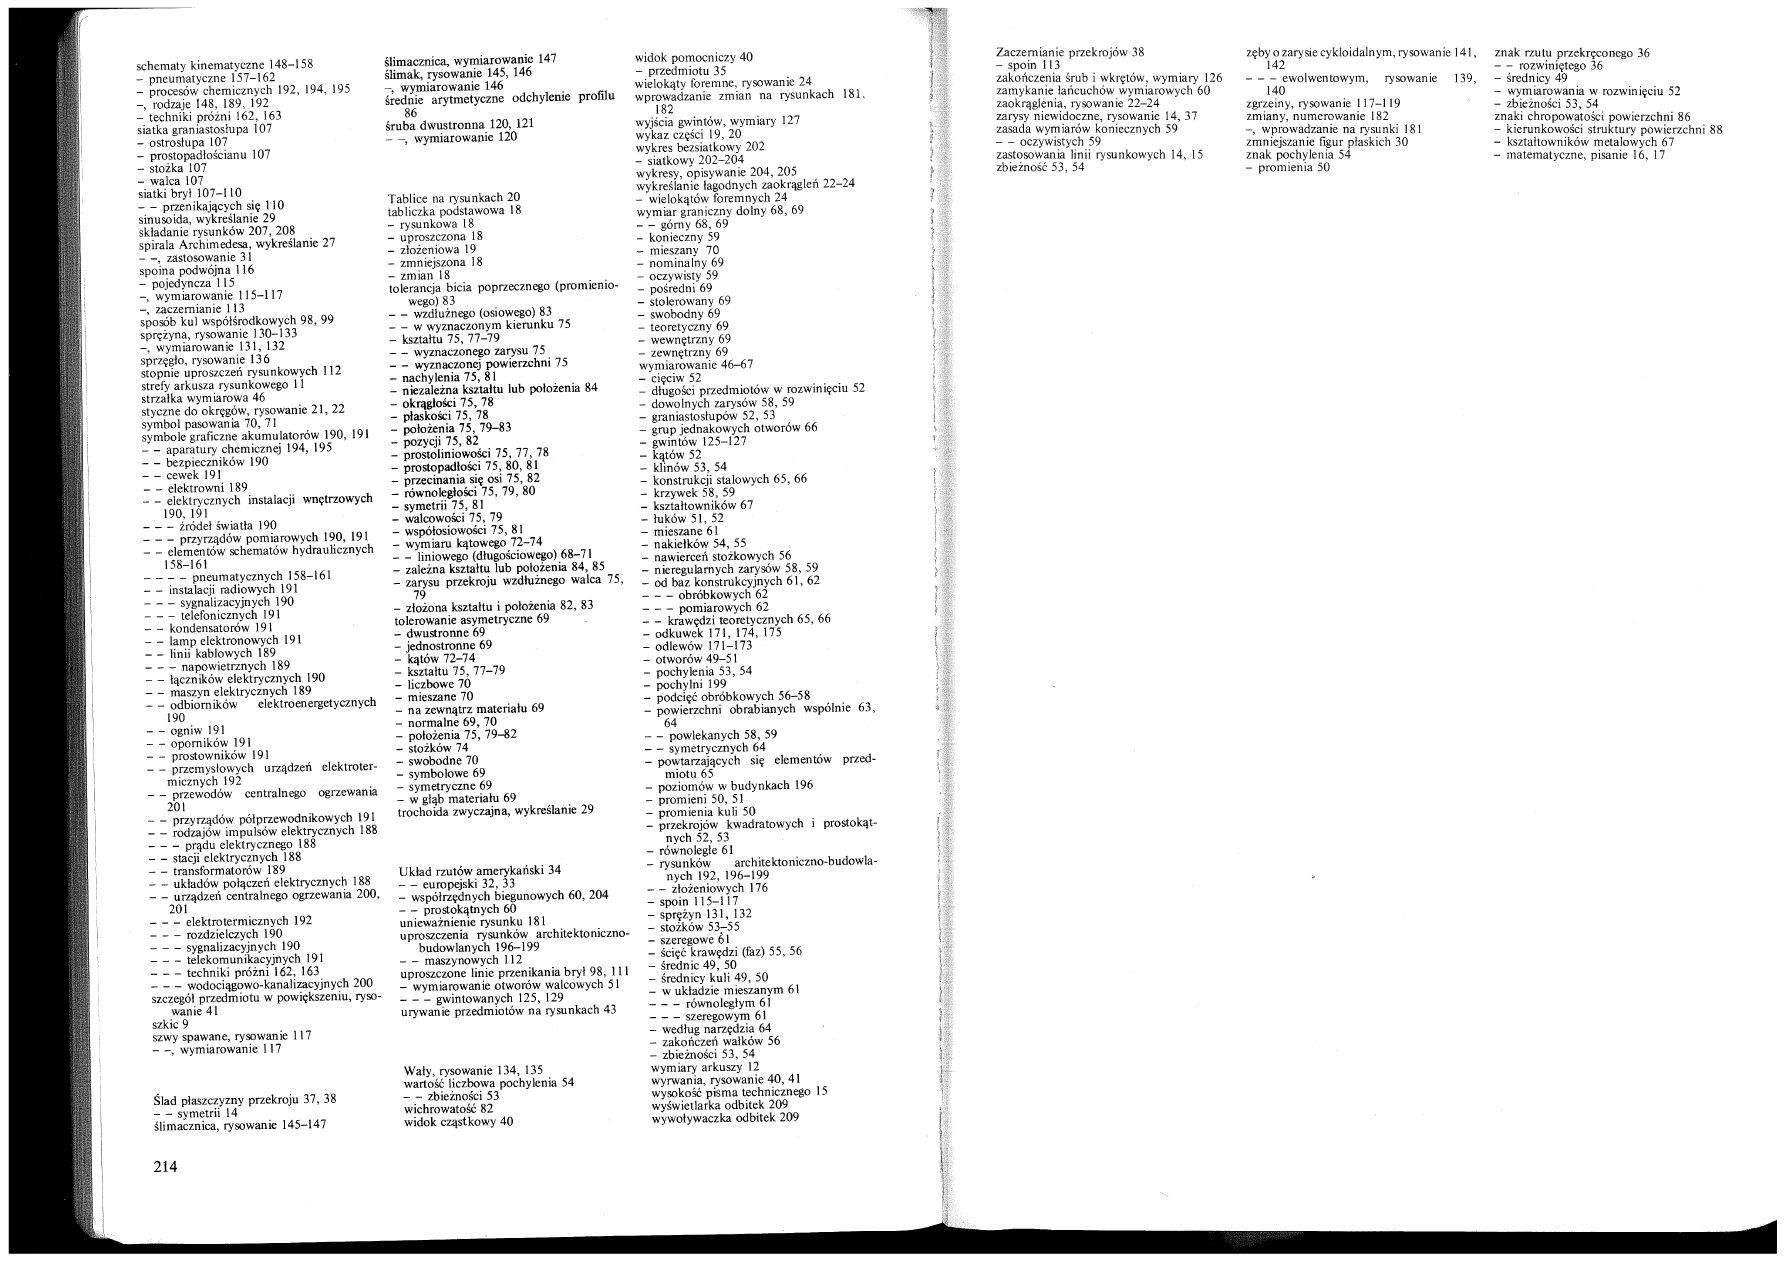 schematy kinematyczne 148–158
– pneumatyczne 157–162
– procesów chemicznych 192, 194, 195
–, rodzaje 148, 189, 192
– techniki próżni 162, 163
siatka graniastosłupa 107
– ostrosłupa 107
– prostopadłościanu 107
– stożka 107
– walca 107
siatki brył 107–110
– – przenikających się 110
sinusoida, wykreślanie 29
składanie rysunków 207, 208
spirala Archimedesa, wykreślanie 27
– –, zastosowanie 31
spoina podwójna 116
– pojedyncza 115
–, wymiarowanie 115–117
–, zaczernianie 113
sposób kul współśrodkowych 98, 99
sprężyna, rysowanie 130–133
–, wymiarowanie 131, 132
sprzęgło, rysowanie 136
stopnie uproszczeń rysunkowych 112
strefy arkusza rysunkowego 11
strzałka wymiarowa 46
styczne do okręgów, rysowanie 21, 22
symbol pasowania 70, 71
symbole graficzne akumulatorów 190, 191
– – aparatury chemicznej 194, 195
– – bezpieczników 190
– – cewek 191
– – elektrowni 189
– – elektrycznych instalacji wnętrzowych
190, 191
– – – źródeł światła 190
– – – przyrządów pomiarowych 190, 191
– – elementów schematów hydraulicznych
158–161
– – – – pneumatycznych 158–161
– – instalacji radiowych 191
– – – sygnalizacyjnych 190
– – – telefonicznych 191
– – kondensatorów 191
– – lamp elektronowych 191
– – linii kablowych 189
– – – napowietrznych 189
– – łączników elektrycznych 190
– – maszyn elektrycznych 189
– – odbiorników elektroenergetycznych
190
– – ogniw 191
– – oporników 191
– – prostowników 191
– – przemysłowych urządzeń elektroter-
micznych 192
– – przewodów centralnego ogrzewania
201
– – przyrządów półprzewodnikowych 191
– – rodzajów impulsów elektrycznych 188
– – – prądu elektrycznego 188
– – stacji elektrycznych 188
– – transformatorów 189
– – układów połączeń elektrycznych 188
– – urządzeń centralnego ogrzewania 200,
201
– – – elektrotermicznych 192
– – – rozdzielczych 190
– – – sygnalizacyjnych 190
– – – telekomunikacyjnych 191
– – – techniki próżni 162, 163
– – – wodociągowo-kanalizacyjnych 200
szczegół przedmiotu w powiększeniu, ryso-
wanie 41
szkic 9
szwy spawane, rysowanie 117
– –, wymiarowanie 117
Ślad płaszczyzny przekroju 37, 38
– – symetrii 14
ślimacznica, rysowanie 145–147
214
ślimacznica, wymiarowanie 147
ślimak, rysowanie 145, 146
–, wymiarowanie 146
średnie arytmetyczne odchylenie profilu
86
śruba dwustronna 120, 121
– –, wymiarowanie 120
Tablice na rysunkach 20
tabliczka podstawowa 18
– rysunkowa 18
– uproszczona 18
– złożeniowa 19
– zmniejszona 18
– zmian 18
tolerancja bicia poprzecznego (promienio-
wego) 83
– – wzdłużnego (osiowego) 83
– – w wyznaczonym kierunku 75
– kształtu 75, 77–79
– – wyznaczonego zarysu 75
– – wyznaczonej powierzchni 75
– nachylenia 75, 81
– niezależna kształtu lub położenia 84
– okrągłości 75, 78
– płaskości 75, 78
– położenia 75, 79–83
– pozycji 75, 82
– prostoliniowości 75, 77, 78
– prostopadłości 75, 80, 81
– przecinania się osi 75, 82
– równoległości 75, 79, 80
– symetrii 75, 81
– walcowości 75, 79
– współosiowości 75, 81
– wymiaru kątowego 72–74
– – liniowego (długościowego) 68–71
– zależna kształtu lub położenia 84, 85
– zarysu przekroju wzdłużnego walca 75,
79
– złożona kształtu i położenia 82, 83
tolerowanie asymetryczne 69
– dwustronne 69
– jednostronne 69
– kątów 72–74
– kształtu 75, 77–79
– liczbowe 70
– mieszane 70
– na zewnątrz materiału 69
– normalne 69, 70
– położenia 75, 79–82
– stożków 74
– swobodne 70
– symbolowe 69
– symetryczne 69
– w głąb materiału 69
trochoida zwyczajna, wykreślanie 29
Układ rzutów amerykański 34
– – europejski 32, 33
– współrzędnych biegunowych 60, 204
– – prostokątnych 60
unieważnienie rysunku 181
uproszczenia rysunków architektoniczno-
budowlanych 196–199
– – maszynowych 112
uproszczone linie przenikania brył 98, 111
– wymiarowanie otworów walcowych 51
– – – gwintowanych 125, 129
urywanie przedmiotów na rysunkach 43
Wały, rysowanie 134, 135
wartość liczbowa pochylenia 54
– – zbieżności 53
wichrowatość 82
widok cząstkowy 40
widok pomocniczy 40
– przedmiotu 35
wielokąty foremne, rysowanie 24
wprowadzanie zmian na rysunkach 181,
182
wyjścia gwintów, wymiary 127
wykaz części 19, 20
wykres bezsiatkowy 202
– siatkowy 202–204
wykresy, opisywanie 204, 205
wykreślanie łagodnych zaokrągleń 22–24
– wielokątów foremnych 24
wymiar graniczny dolny 68, 69
– – górny 68, 69
– konieczny 59
– mieszany 70
– nominalny 69
– oczywisty 59
– pośredni 69
– stolerowany 69
– swobodny 69
– teoretyczny 69
– wewnętrzny 69
– zewnętrzny 69
wymiarowanie 46–67
– cięciw 52
– długości przedmiotów w rozwinięciu 52
– dowolnych zarysów 58, 59
– graniastosłupów 52, 53
– grup jednakowych otworów 66
– gwintów 125–127
– kątów 52
– klinów 53, 54
– konstrukcji stalowych 65, 66
– krzywek 58, 59
– kształtowników 67
– łuków 51, 52
– mieszane 61
– nakiełków 54, 55
– nawierceń stożkowych 56
– nieregularnych zarysów 58, 59
– od baz konstrukcyjnych 61, 62
– – – obróbkowych 62
– – – pomiarowych 62
– – krawędzi teoretycznych 65, 66
– odkuwek 171, 174, 175
– odlewów 171–173
– otworów 49–51
– pochylenia 53, 54
– pochylni 199
– podcięć obróbkowych 56–58
– powierzchni obrabianych wspólnie 63,
64
– – powlekanych 58, 59
– – symetrycznych 64
– powtarzających się elementów przed-
miotu 65
– poziomów w budynkach 196
– promieni 50, 51
– promienia kuli 50
– przekrojów kwadratowych i prostokąt-
nych 52, 53
– równoległe 61
– rysunków architektoniczno-budowla-
nych 192, 196–199
– – złożeniowych 176
– spoin 115–117
– sprężyn 131, 132
– stożków 53–55
– szeregowe 61
– ścięć krawędzi (faz) 55, 56
– średnic 49, 50
– średnicy kuli 49, 50
– w układzie mieszanym 61
– – – równoległym 61
– – – szeregowym 61
– według narzędzia 64
– zakończeń wałków 56
– zbieżności 53, 54
wymiary arkuszy 12
wyrwania, rysowanie 40, 41
wysokość pisma technicznego 15
wyświetlarka odbitek 209
wywoływaczka odbitek 209
Zaczernianie przekrojów 38
– spoin 113
zakończenia śrub i wkrętów, wymiary 126
zamykanie łańcuchów wymiarowych 60
zaokrąglenia, rysowanie 22–24
zarysy niewidoczne, rysowanie 14, 37
zasada wymiarów koniecznych 59
– – oczywistych 59
zastosowania linii rysunkowych 14, 15
zbieżność 53, 54
zęby o zarysie cykloidalnym, rysowanie 141,
142
– – – ewolwentowym, rysowanie 139,
140
zgrzeiny, rysowanie 117–119
zmiany, numerowanie 182
–, wprowadzanie na rysunki 181
zmniejszanie figur płaskich 30
znak pochylenia 54
– promienia 50
znak rzutu przekręconego 36
– – rozwiniętego 36
– średnicy 49
– wymiarowania w rozwinięciu 52
– zbieżności 53, 54
znaki chropowatości powierzchni 86
– kierunkowości struktury powierzchni 88
– kształtowników metalowych 67
– matematyczne, pisanie 16, 17